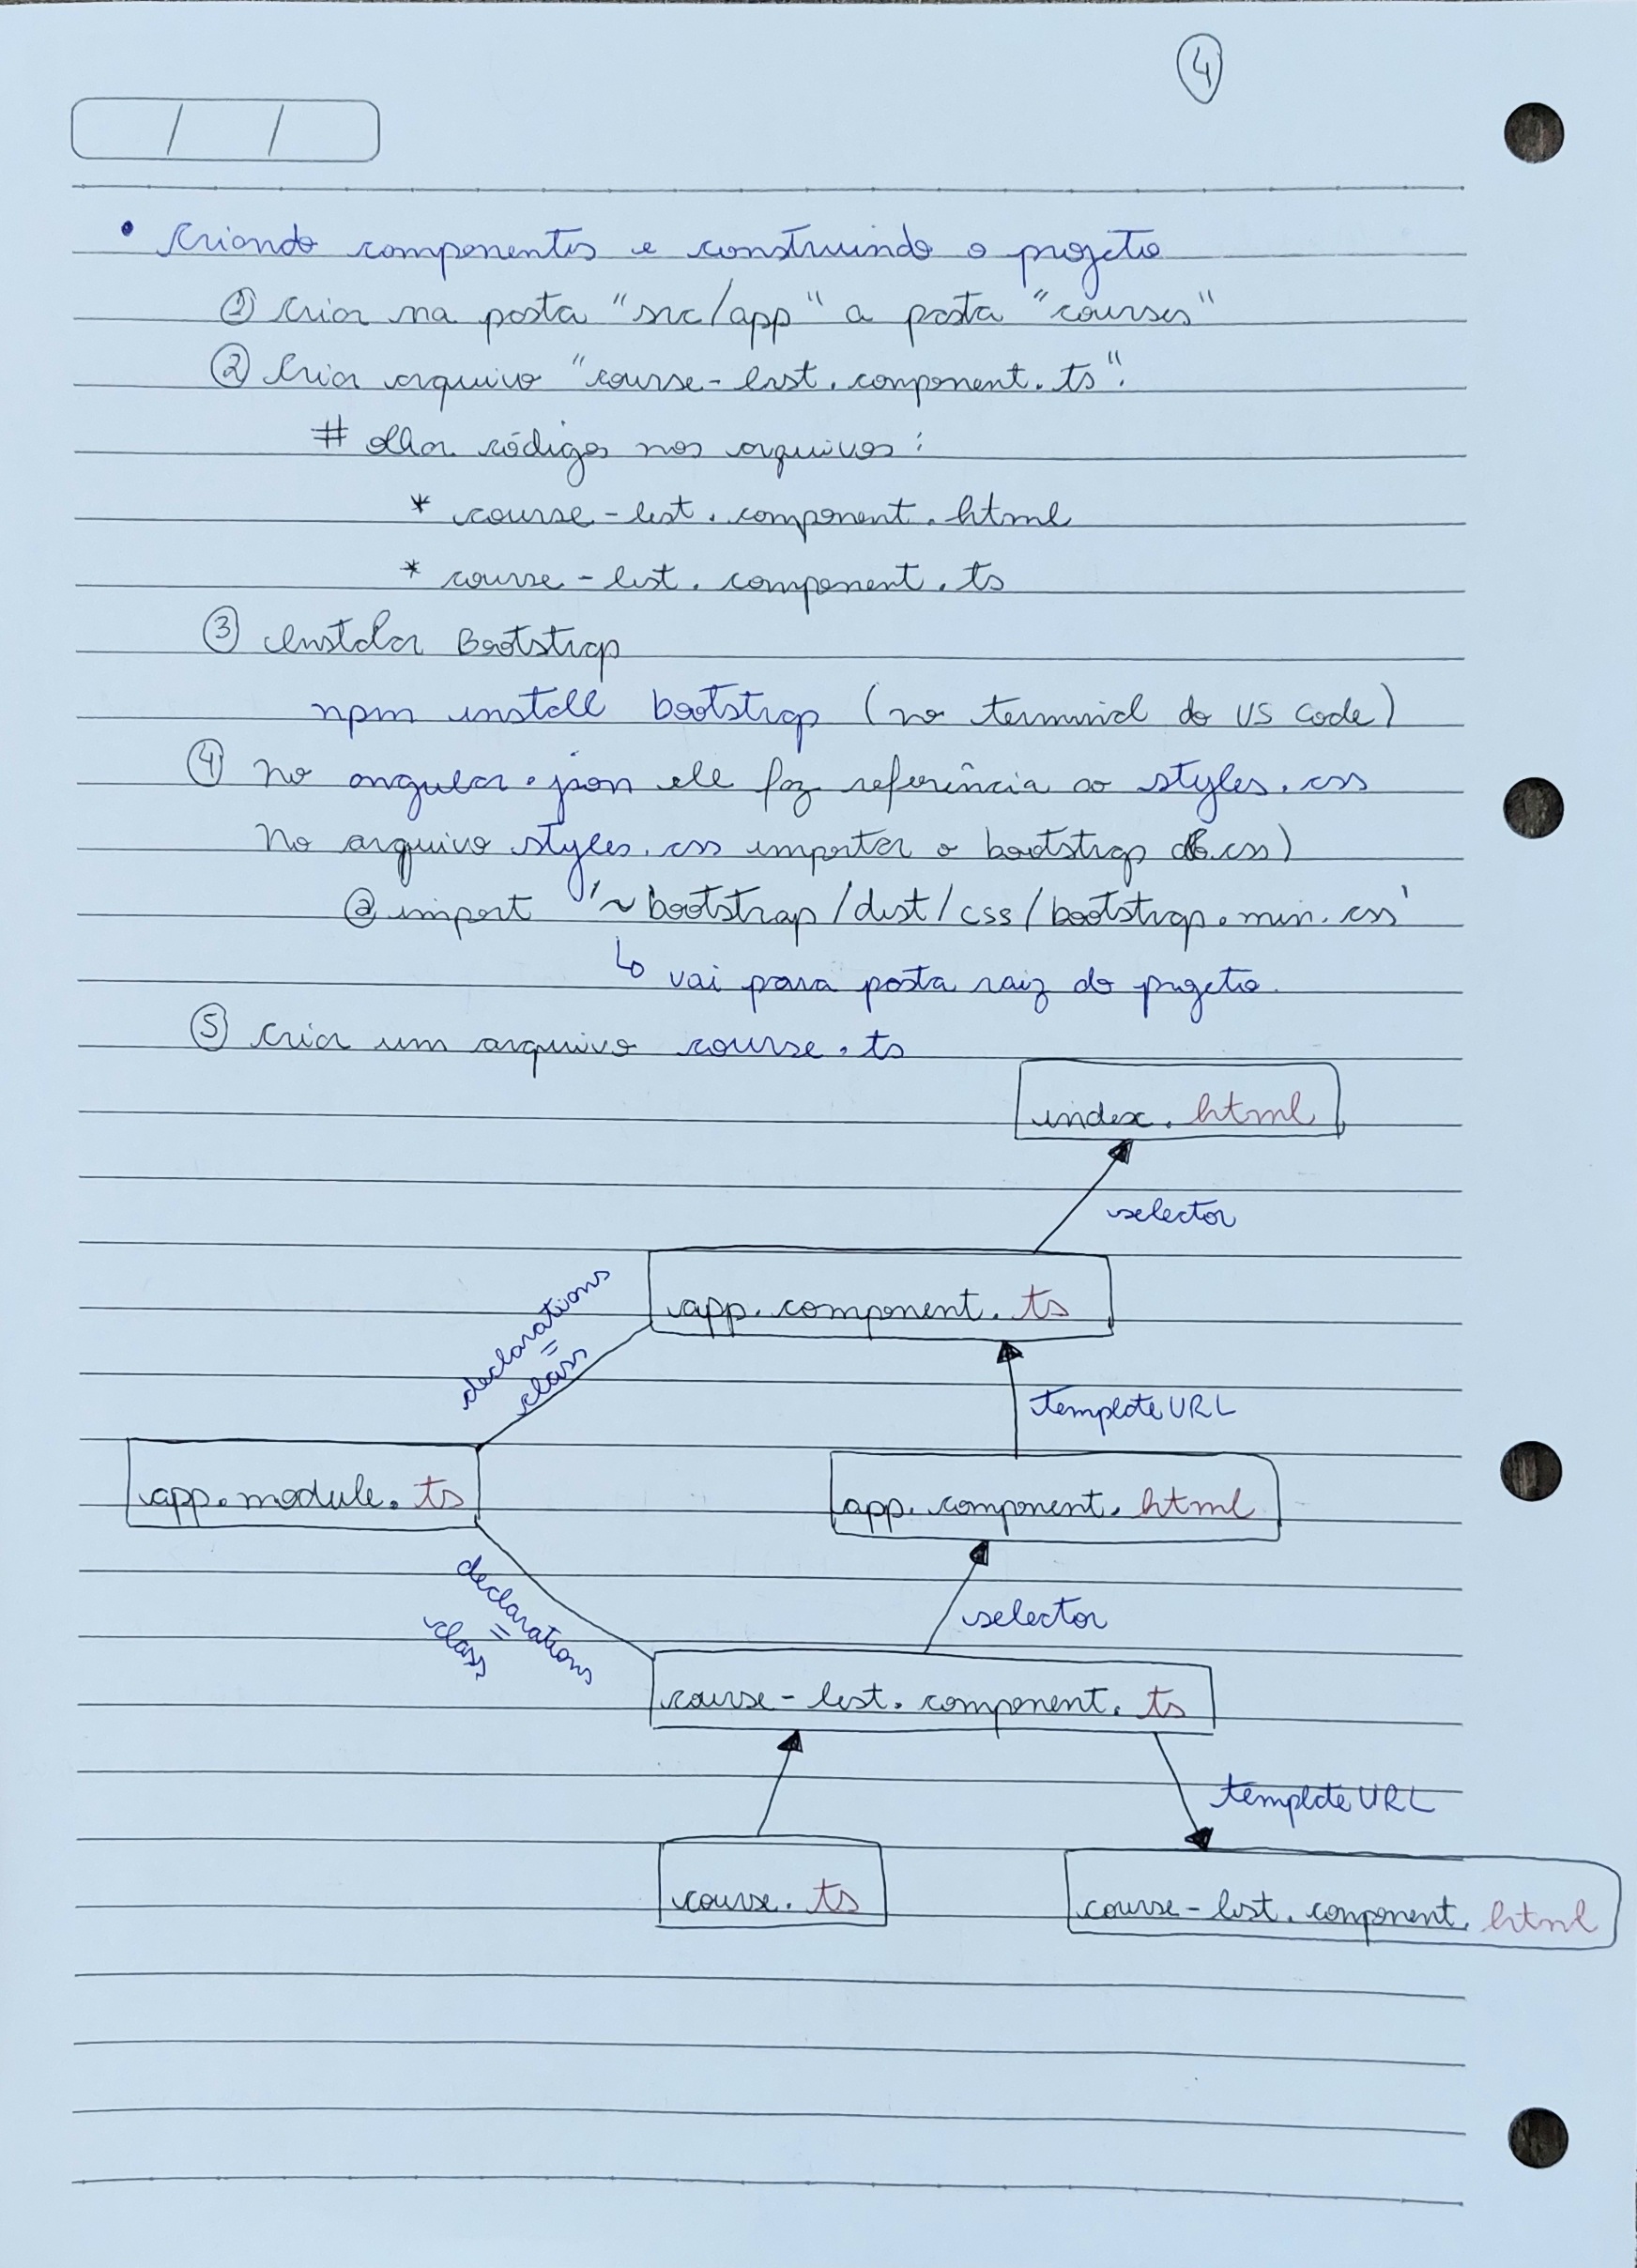 4
/ /
• Criando componentes e construindo o projeto
① Criar na pasta "src/app" a pasta "courses"
② Criar arquivo "course-list.component.ts".
# Olhar códigos nos arquivos:
* course-list.component.html
* course-list.component.ts
③ Instalar Bootstrap
npm install bootstrap (no terminal do VS Code)
④ No angular.json ele faz referência ao styles.css
No arquivo styles.css importar o bootstrap .css)
@import '~bootstrap/dist/css/bootstrap.min.css'
↳ vai para pasta raiz do projeto.
⑤ Criar um arquivo course.ts
index.html
selector
app.component.ts
declarations
=
class
templateURL
app.module.ts
app.component.html
selector
declarations
=
class
course-list.component.ts
templateURL
course.ts
course-list.component.html